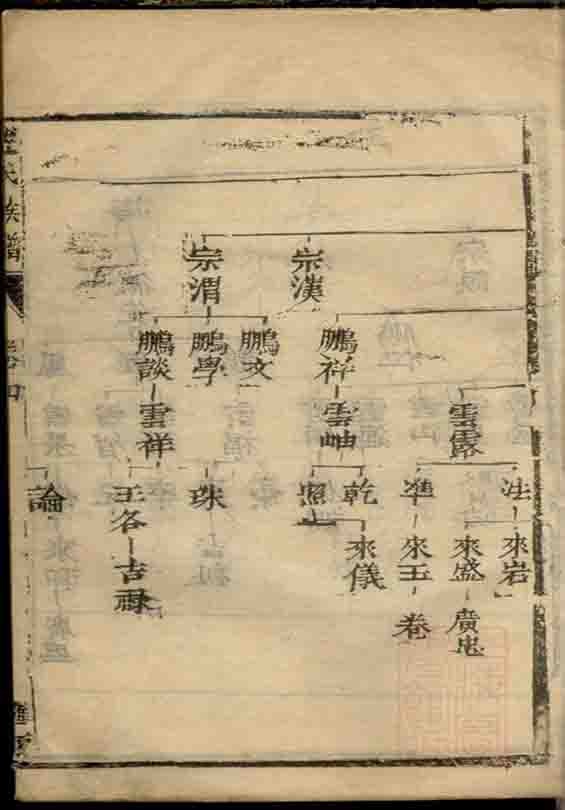 宗漢
宗渭
鵬祥
鵬文
鵬學
鵬談
雲露
雲岫
雲祥
法
準
乾
照
珠
論
來岩
來盛
來玉
來儀
吉祿
廣忠
卷
氏族譜